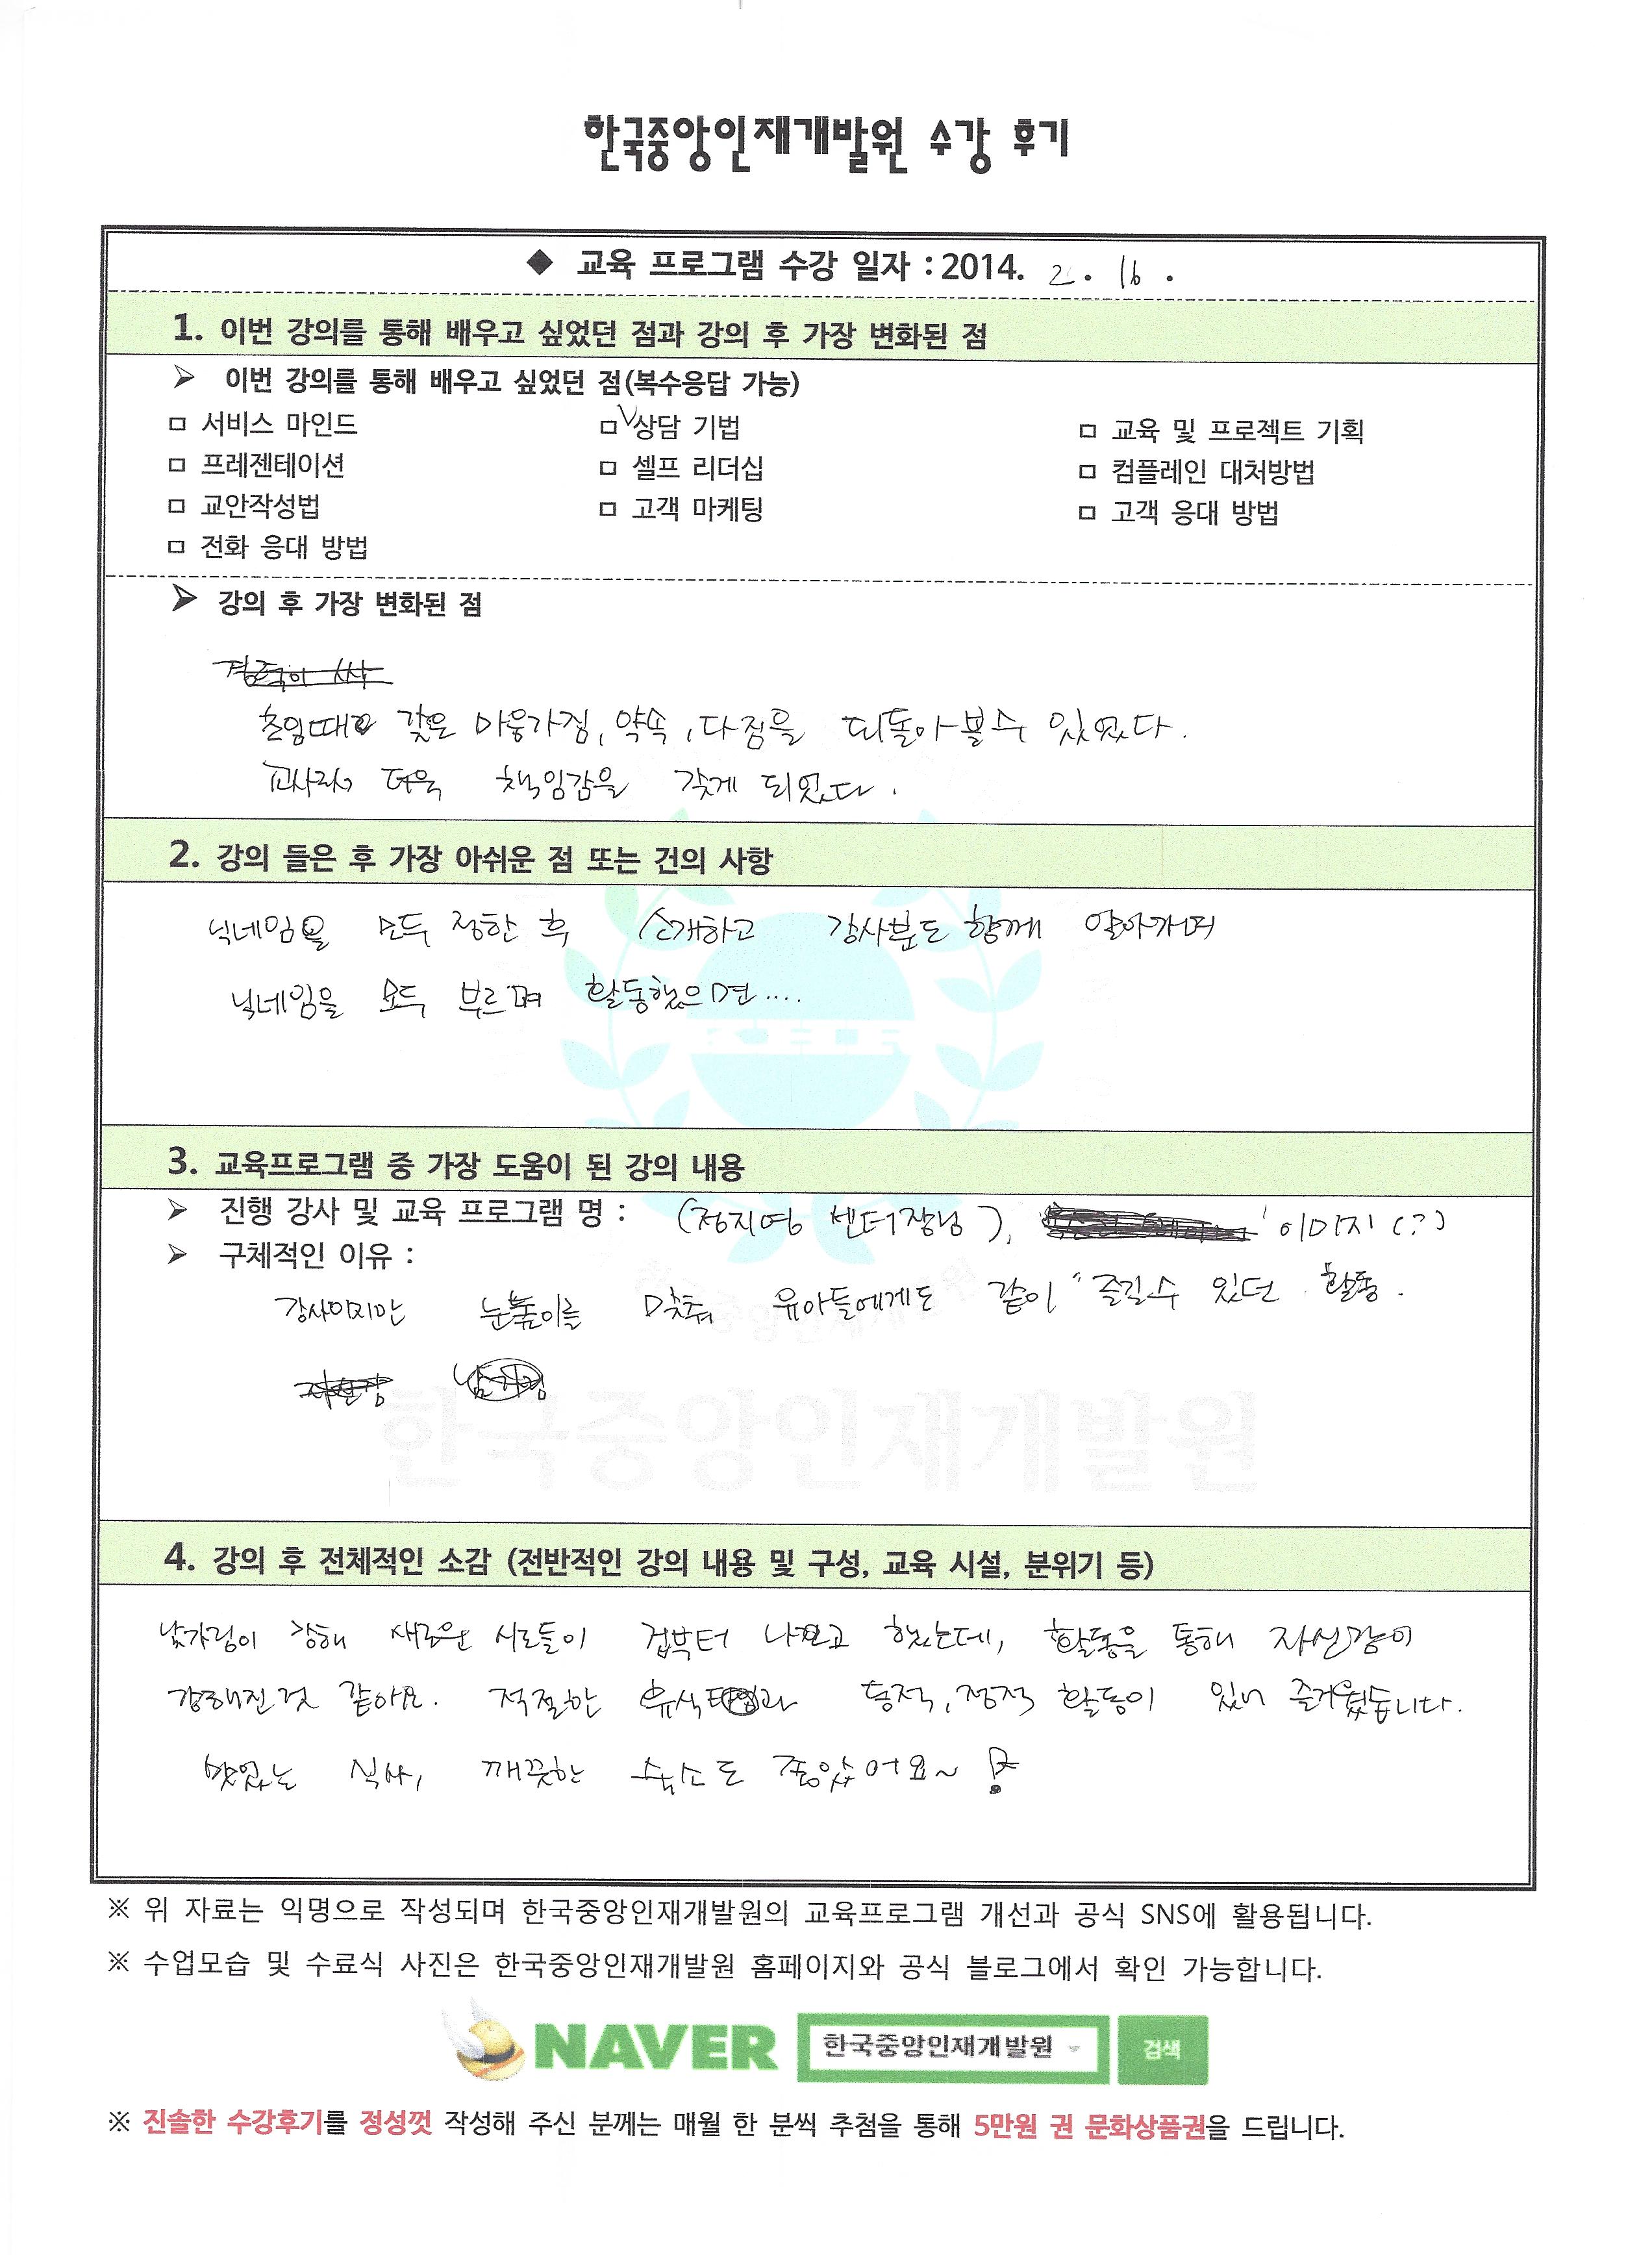 한국중앙인재개발원 수강 후기
◆ 교육 프로그램 수강 일자 : 2014. 2. 16.
1. 이번 강의를 통해 배우고 싶었던 점과 강의 후 가장 변화된 점
➢ 이번 강의를 통해 배우고 싶었던 점(복수응답 가능)
□ 서비스 마인드 □ √상담 기법 □ 교육 및 프로젝트 기획
□ 프레젠테이션 □ 셀프 리더십 □ 컴플레인 대처방법
□ 교안작성법 □ 고객 마케팅 □ 고객 응대 방법
□ 전화 응대 방법
➢ 강의 후 가장 변화된 점
초임때와 같은 마음가짐, 약속, 다짐을 되돌아볼수 있었다.
교사로서 더욱 책임감을 갖게 되었다.
2. 강의 들은 후 가장 아쉬운 점 또는 건의 사항
닉네임을 모두 정한 후 소개하고 강사분도 함께 알아가며
닉네임을 모두 부르며 활동했으면....
3. 교육프로그램 중 가장 도움이 된 강의 내용
➢ 진행 강사 및 교육 프로그램 명 : (정지영 센터장님), 이미지(?)
➢ 구체적인 이유 :
강사이지만 눈높이를 맞춰 유아들에게도 같이 즐길수 있던 활동.
한국중앙인재개발원
4. 강의 후 전체적인 소감 (전반적인 강의 내용 및 구성, 교육 시설, 분위기 등)
낯가림이 강해 새로운 시도들이 겁부터 나고 했는데, 활동을 통해 자신감이
강해진것 같아요. 적절한 휴식타임과 동적, 정적 활동이 있어 즐거웠습니다.
맛있는 식사, 깨끗한 숙소도 좋았어요~!
※ 위 자료는 익명으로 작성되며 한국중앙인재개발원의 교육프로그램 개선과 공식 SNS에 활용됩니다.
※ 수업모습 및 수료식 사진은 한국중앙인재개발원 홈페이지와 공식 블로그에서 확인 가능합니다.
NAVER 한국중앙인재개발원 검색
※ 진솔한 수강후기를 정성껏 작성해 주신 분께는 매월 한 분씩 추첨을 통해 5만원 권 문화상품권을 드립니다.